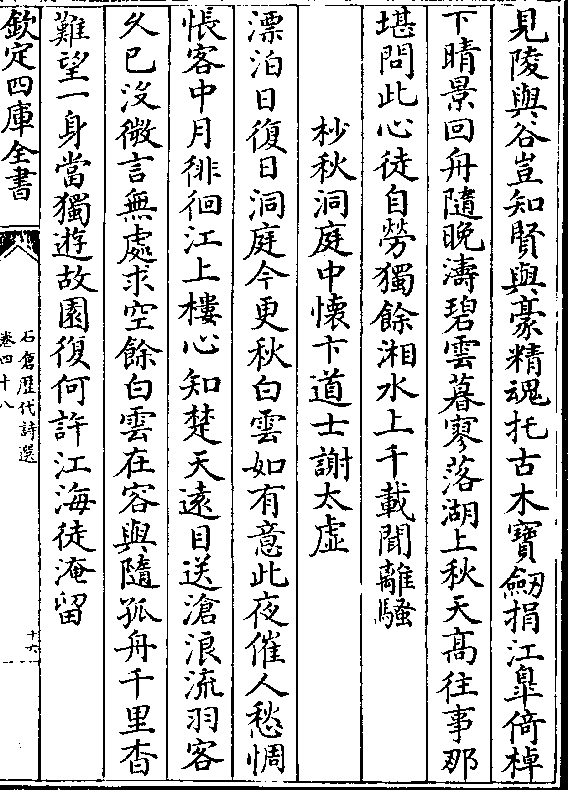 見陵與谷豈知賢與豪精魂托古木寶劒捐江臯倚棹
下晴景回舟隨晚濤碧雲暮寥落湖上秋天高往事那
堪問此心徒自勞獨餘湘水上千載聞離騷
杪秋洞庭中懐卞道士謝太虚
漂泊日復日洞庭今更秋白雲如有意此夜催人愁惆
悵客中月徘徊江上樓心知楚天遠目送滄浪流羽客
乆巳沒微言無處求空餘白雲在容與隨孤舟千里杳
難望一身當獨遊故園復何許江海徒淹留
欽定四庫全書
石倉歴代詩選
卷四十八
十六